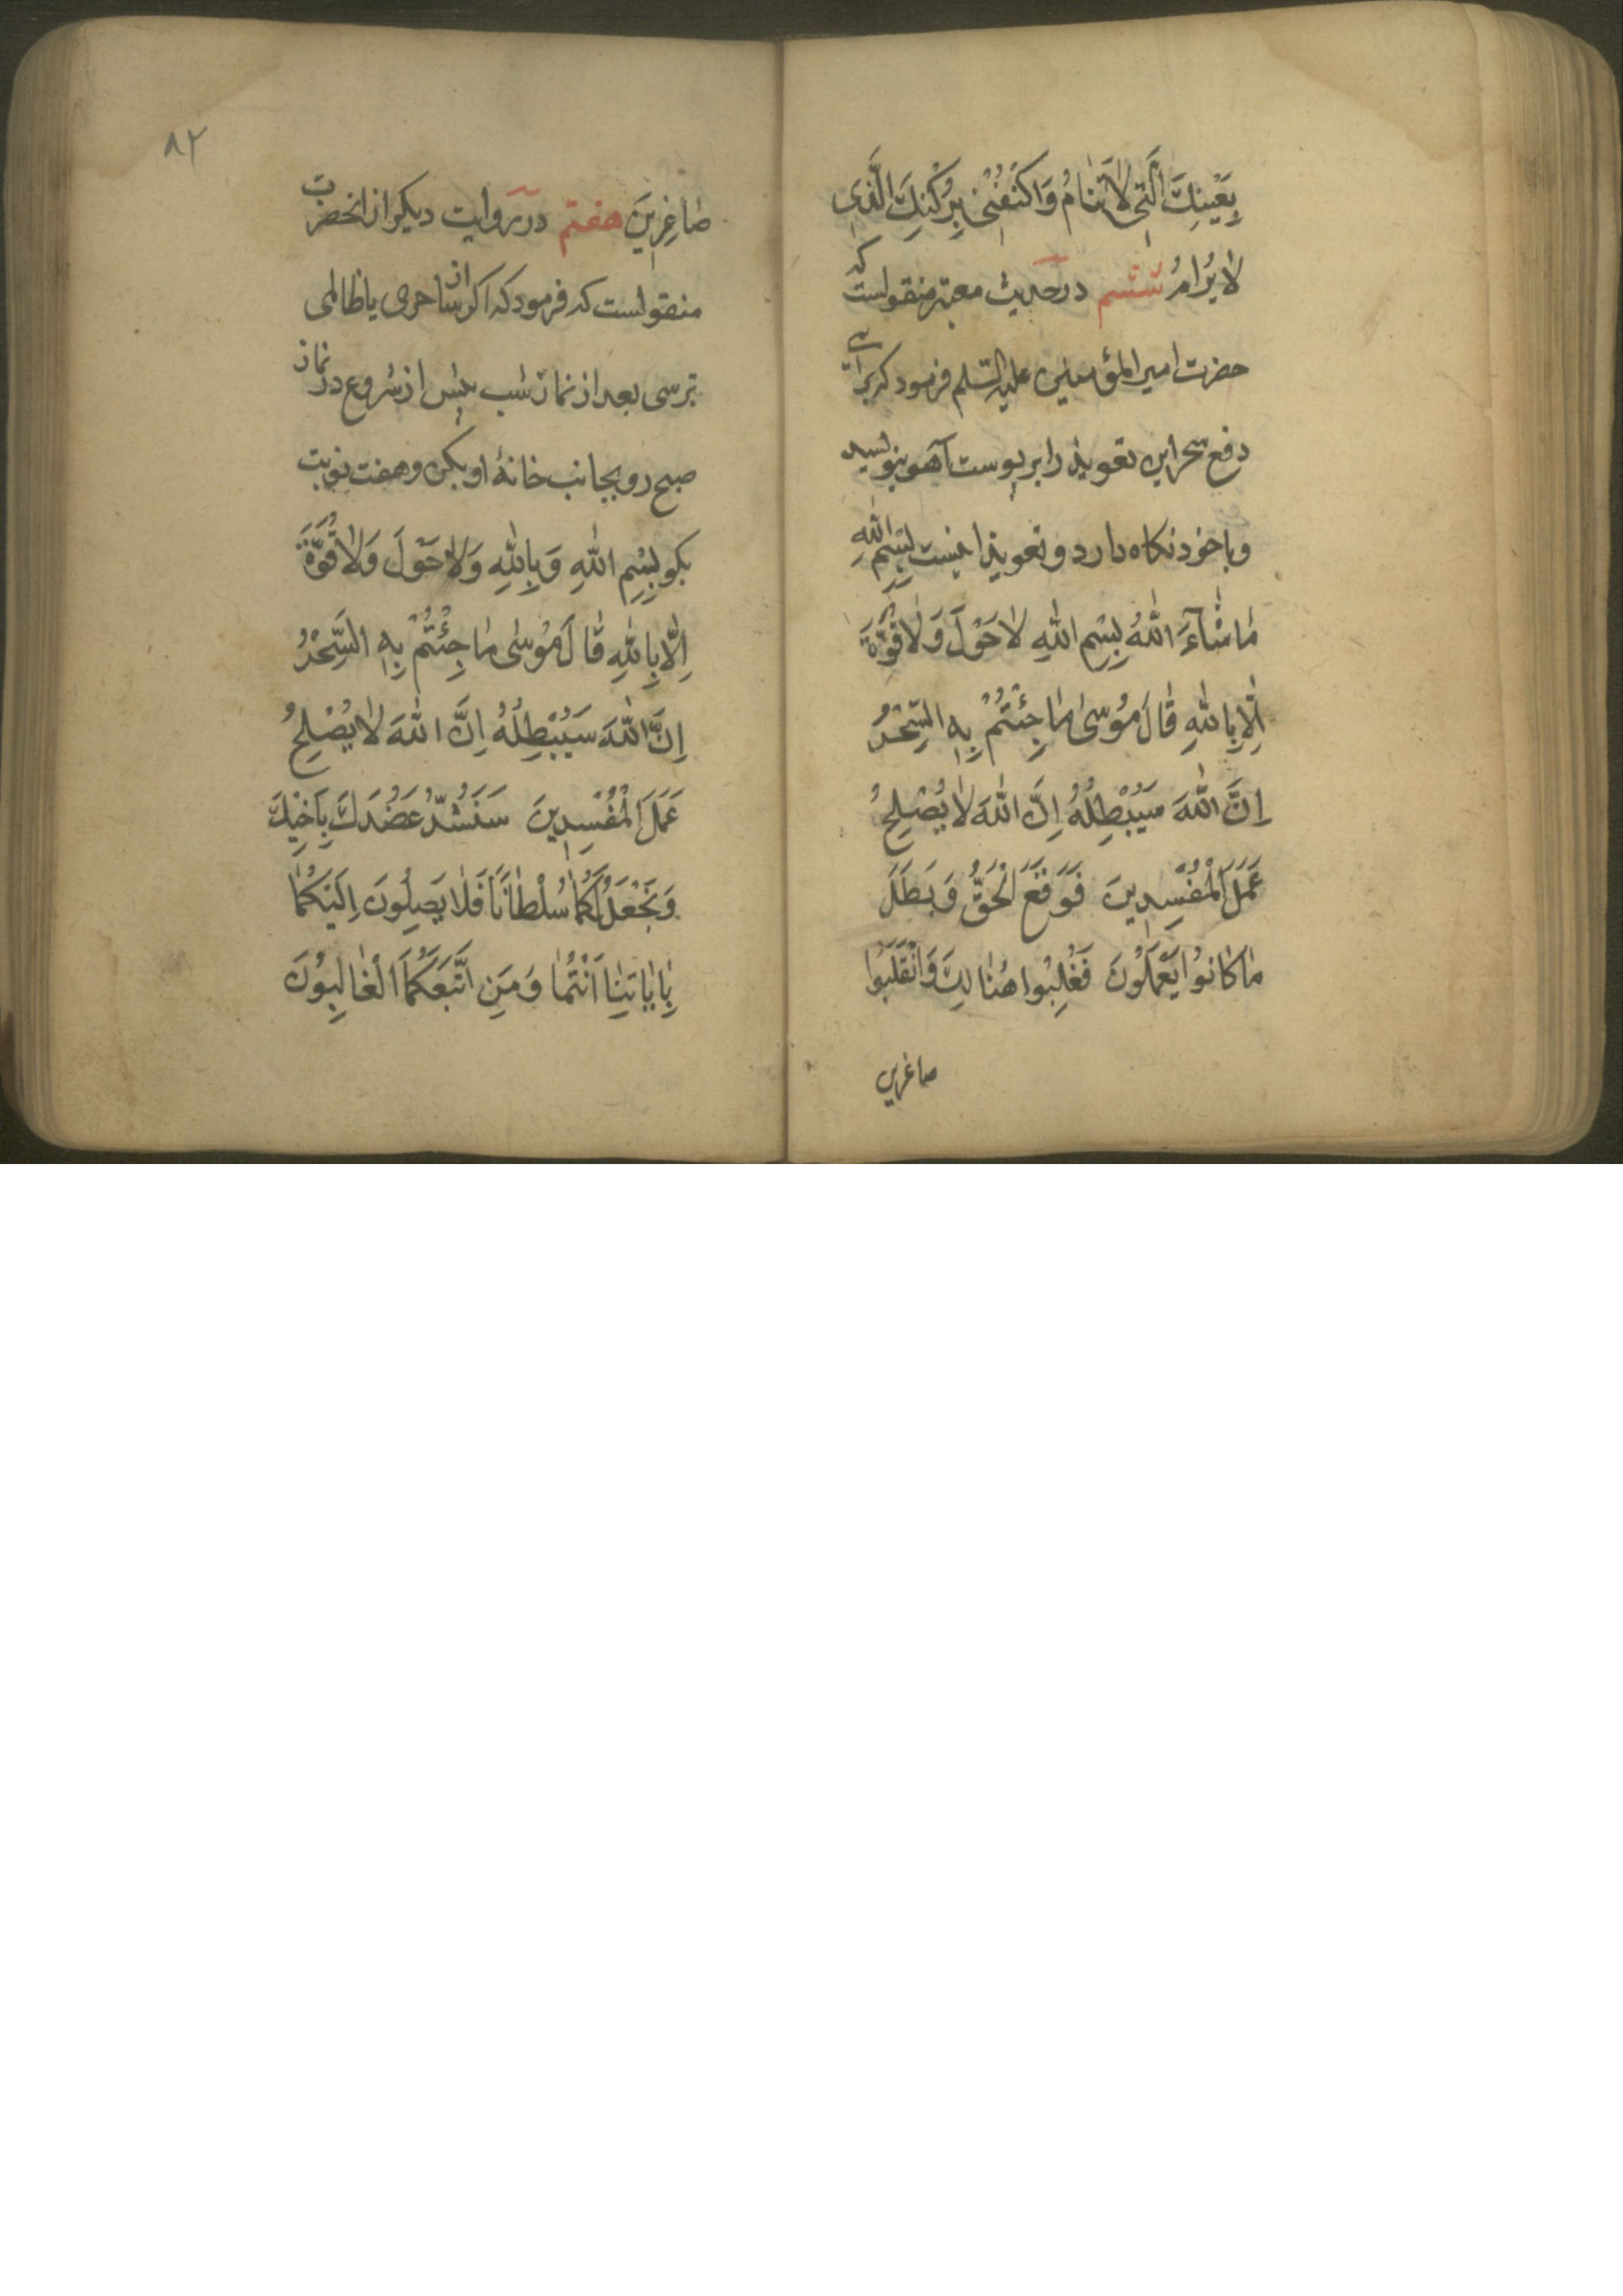 بِعَيْنِكَ الَّتِي لٰا تَنٰامُ وَاكْنُفْنِي بِرُكْنِكَ الَّذِي
لٰا يُرٰامُ ششم در حدیث معتبر منقولست که
حضرت امیر المؤمنین علیه السّلم فرمود که برای
دفع سحر این تعویذ را بر پوست آهو بنویسید
و با خود نکاه دارد و تعویذ اینست بِسْمِ اللهِ
مٰا شٰآءَ اللهُ بِسْمِ اللهِ لٰا حَوْلَ وَلٰا قُوَّةَ
اِلّٰا بِاللهِ قٰالَ مُوسٰى مٰا جِئْتُمْ بِهِ السِّحْرُ
اِنَّ اللهَ سَيُبْطِلُهُ اِنَّ اللهَ لٰا يُصْلِحُ
عَمَلَ الْمُفْسِدِينَ فَوَقَعَ الْحَقُّ وَبَطَلَ
مٰا كٰانُوا يَعْمَلُونَ فَغُلِبُوا هُنٰالِكَ وَانْقَلَبُوا
صاغرین
٨٢
صٰاغِرِينَ هفتم در روایت دیکر از انحضرت
منقولست که فرمود که اکر از ساحری یا ظالمی
ترسی بعد از نماز شب پیش از شروع در نماز
صبح رو بجانب خانهٔ او بکن و هفت نوبت
بکو بِسْمِ اللهِ وَبِاللهِ وَلٰا حَوْلَ وَلٰا قُوَّةَ
اِلّٰا بِاللهِ قٰالَ مُوسٰى مٰا جِئْتُمْ بِهِ السِّحْرُ
اِنَّ اللهَ سَيُبْطِلُهُ اِنَّ اللهَ لٰا يُصْلِحُ
عَمَلَ الْمُفْسِدِينَ سَنَشُدُّ عَضُدَكَ بِاَخِيكَ
وَنَجْعَلُ لَكُمٰا سُلْطٰانًا فَلٰا يَصِلُونَ اِلَيْكُمٰا
بِاٰيٰاتِنٰا اَنْتُمٰا وَمَنِ اتَّبَعَكُمَا الْغٰالِبُونَ